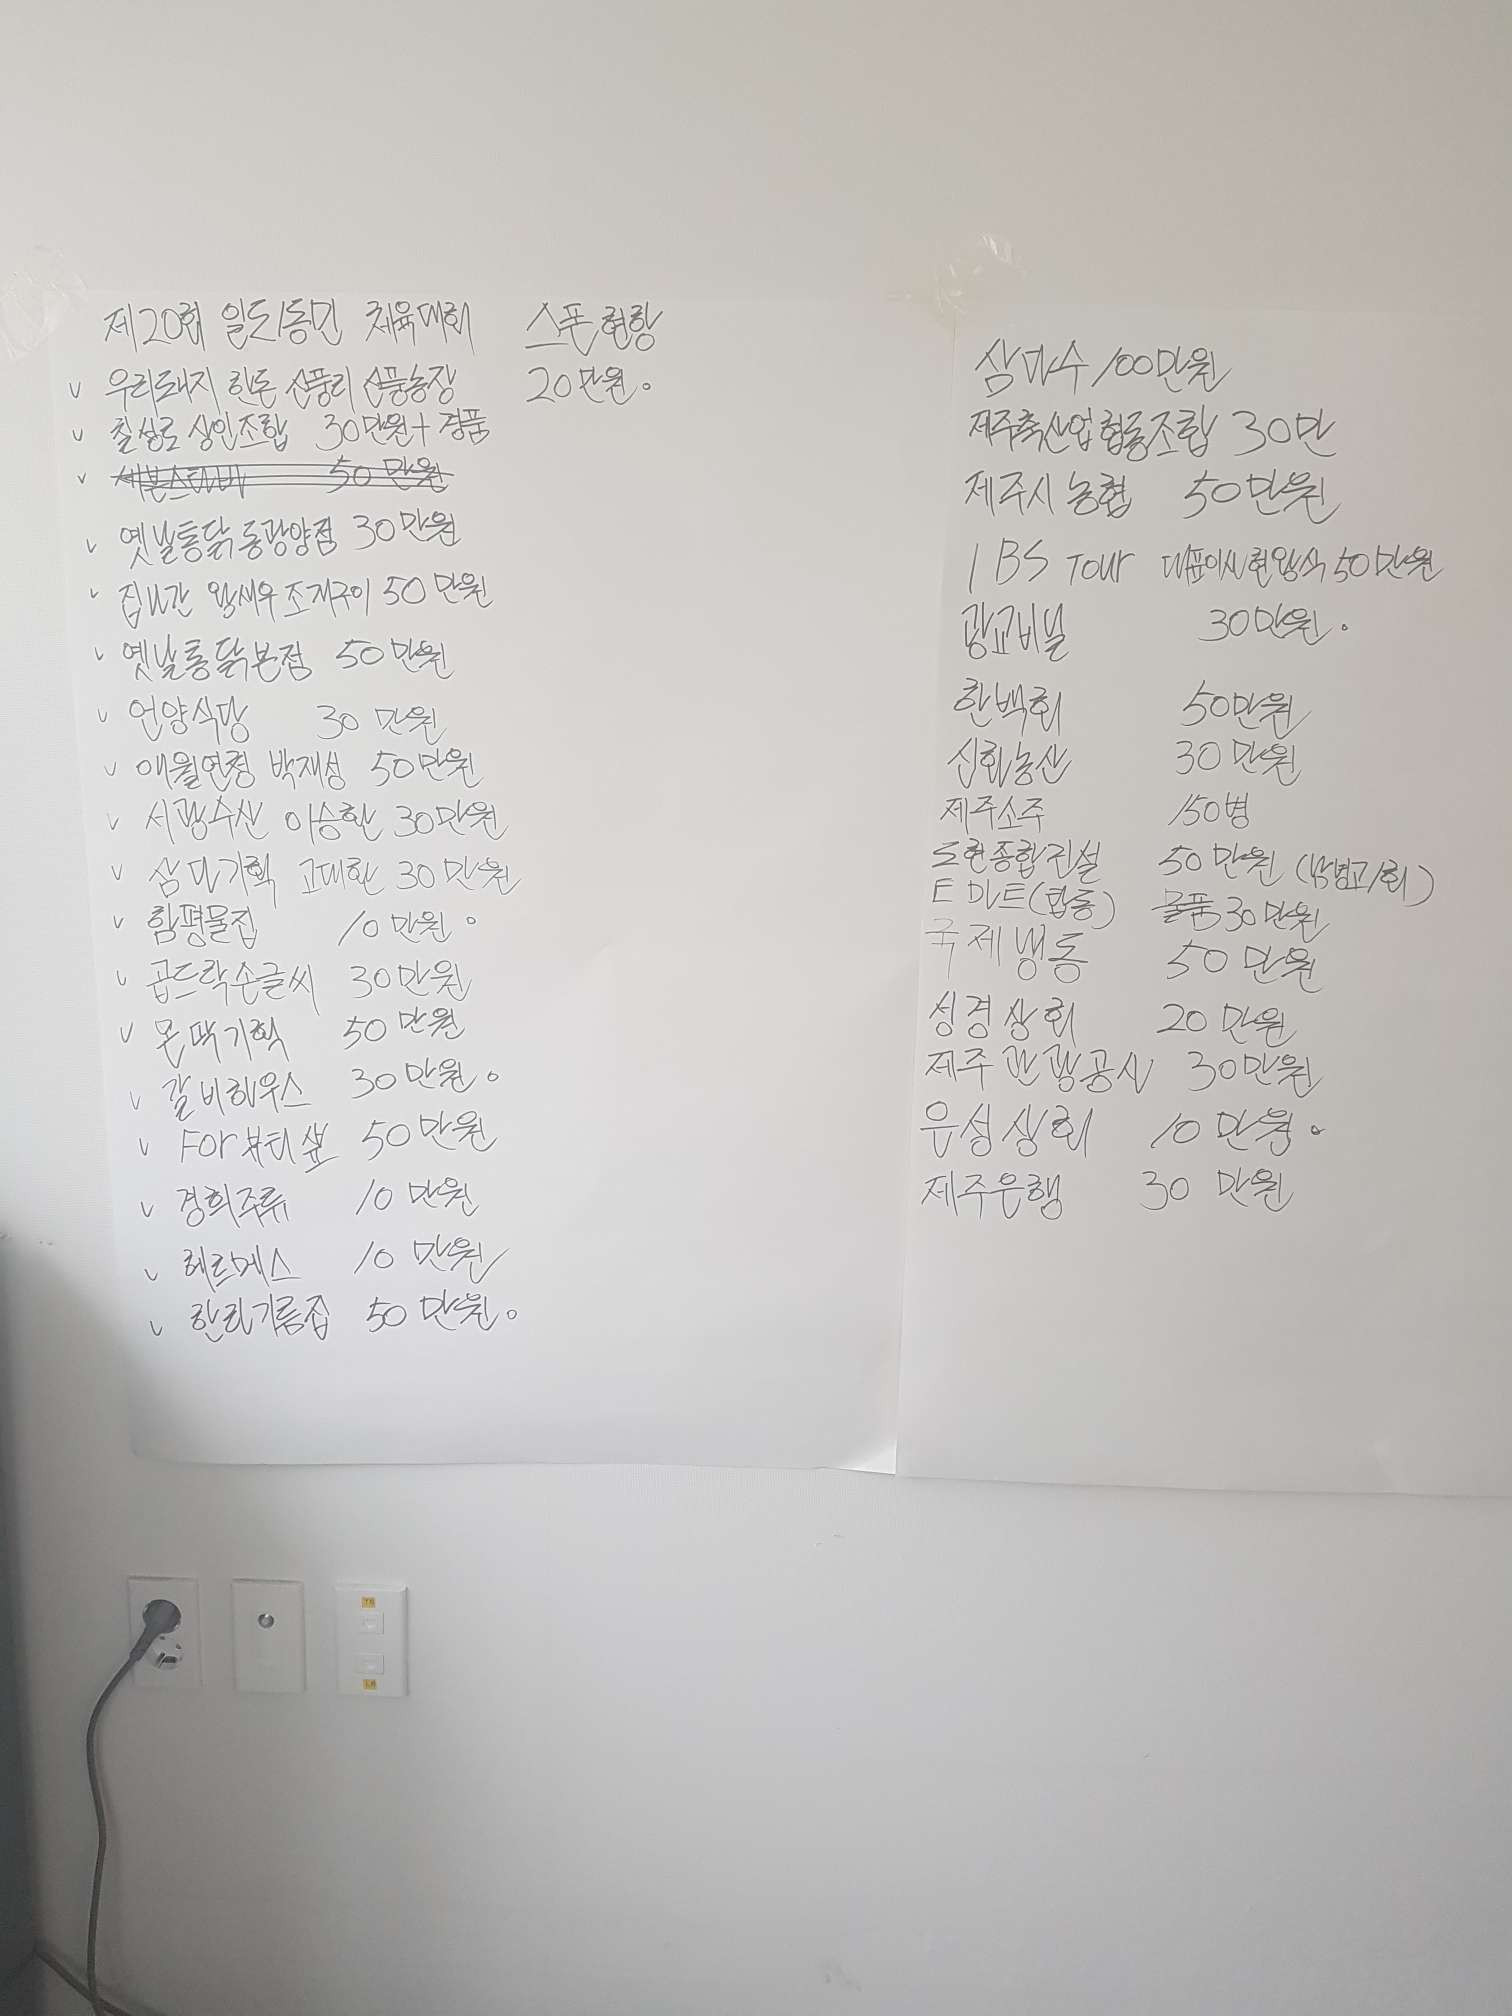 제20회 일도1동민 체육대회 스폰현황
∨ 우리돼지 한돈 신풍리 신풍농장 20만원.
∨ 칠성로 상인조합 30만원+경품
∨ 세븐스타비 50만원
∨ 옛날통닭동광양점 30만원
∨ 집나간 왕새우조개구이 50만원
∨ 옛날통닭본점 50만원
∨ 언양식당 30만원
∨ 애월연정 박재성 50만원
∨ 서광수산 이승환 30만원
∨ 삼다기획 고대환 30만원
∨ 함평물집 10만원.
∨ 곱드락손글씨 30만원
∨ 몬딱기획 50만원
∨ 갈비하우스 30만원.
∨ For뷰티샾 50만원
∨ 경희주류 10만원
∨ 헤르메스 10만원
∨ 한라기름집 50만원.
삼다수 100만원
제주축산업협동조합 30만
제주시농협 50만원
IBS Tour 대표이사 현왕식 50만원
광교비닐 30만원.
한백회 50만원
신화농산 30만원
제주소주 150병
도현종합건설 50만원 (남녕고1회)
E마트(탑동) 물품30만원
국제냉동 50만원
성경상회 20만원
제주관광공사 30만원
유성상회 10만원.
제주은행 30만원